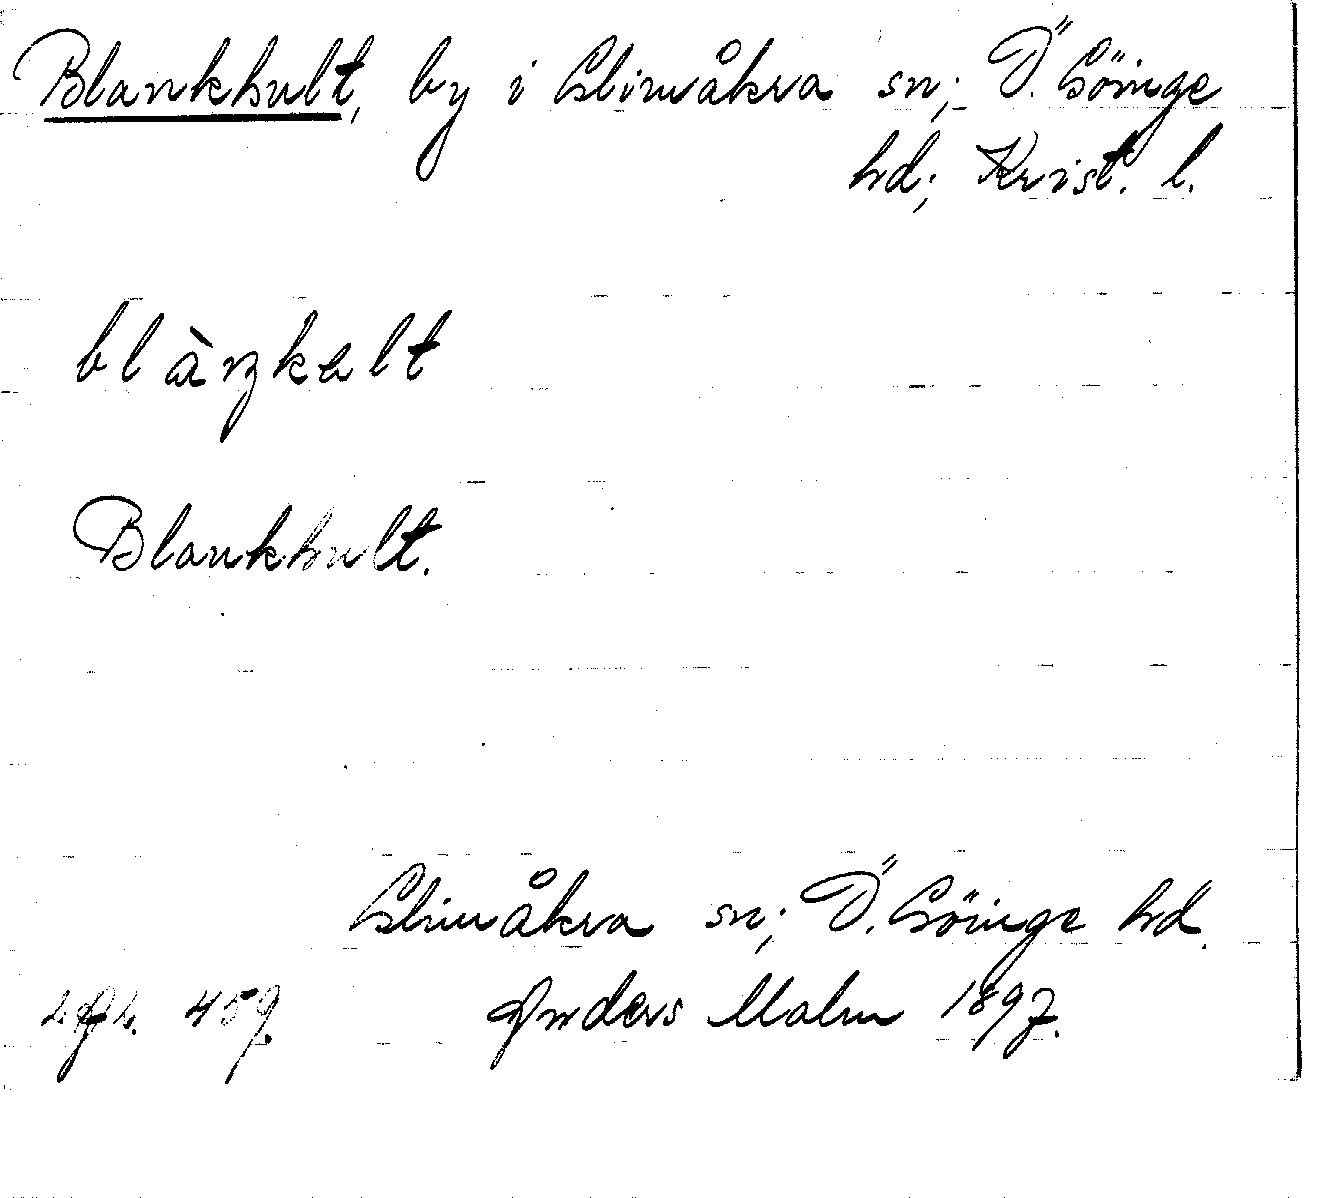 Blankhult, by i Glimåkra sn; Ö. Göinge
hd; Krist. l.
blàŋkalt
Blankhult.
Glimåkra sn; Ö. Göinge hd.
459. Anders Malm 1897.